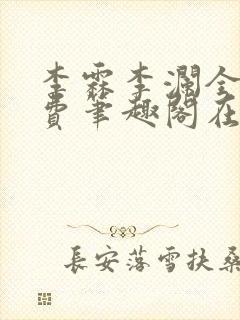 李霖李瀾全
費筆趣閣在
長安落雪扶桑